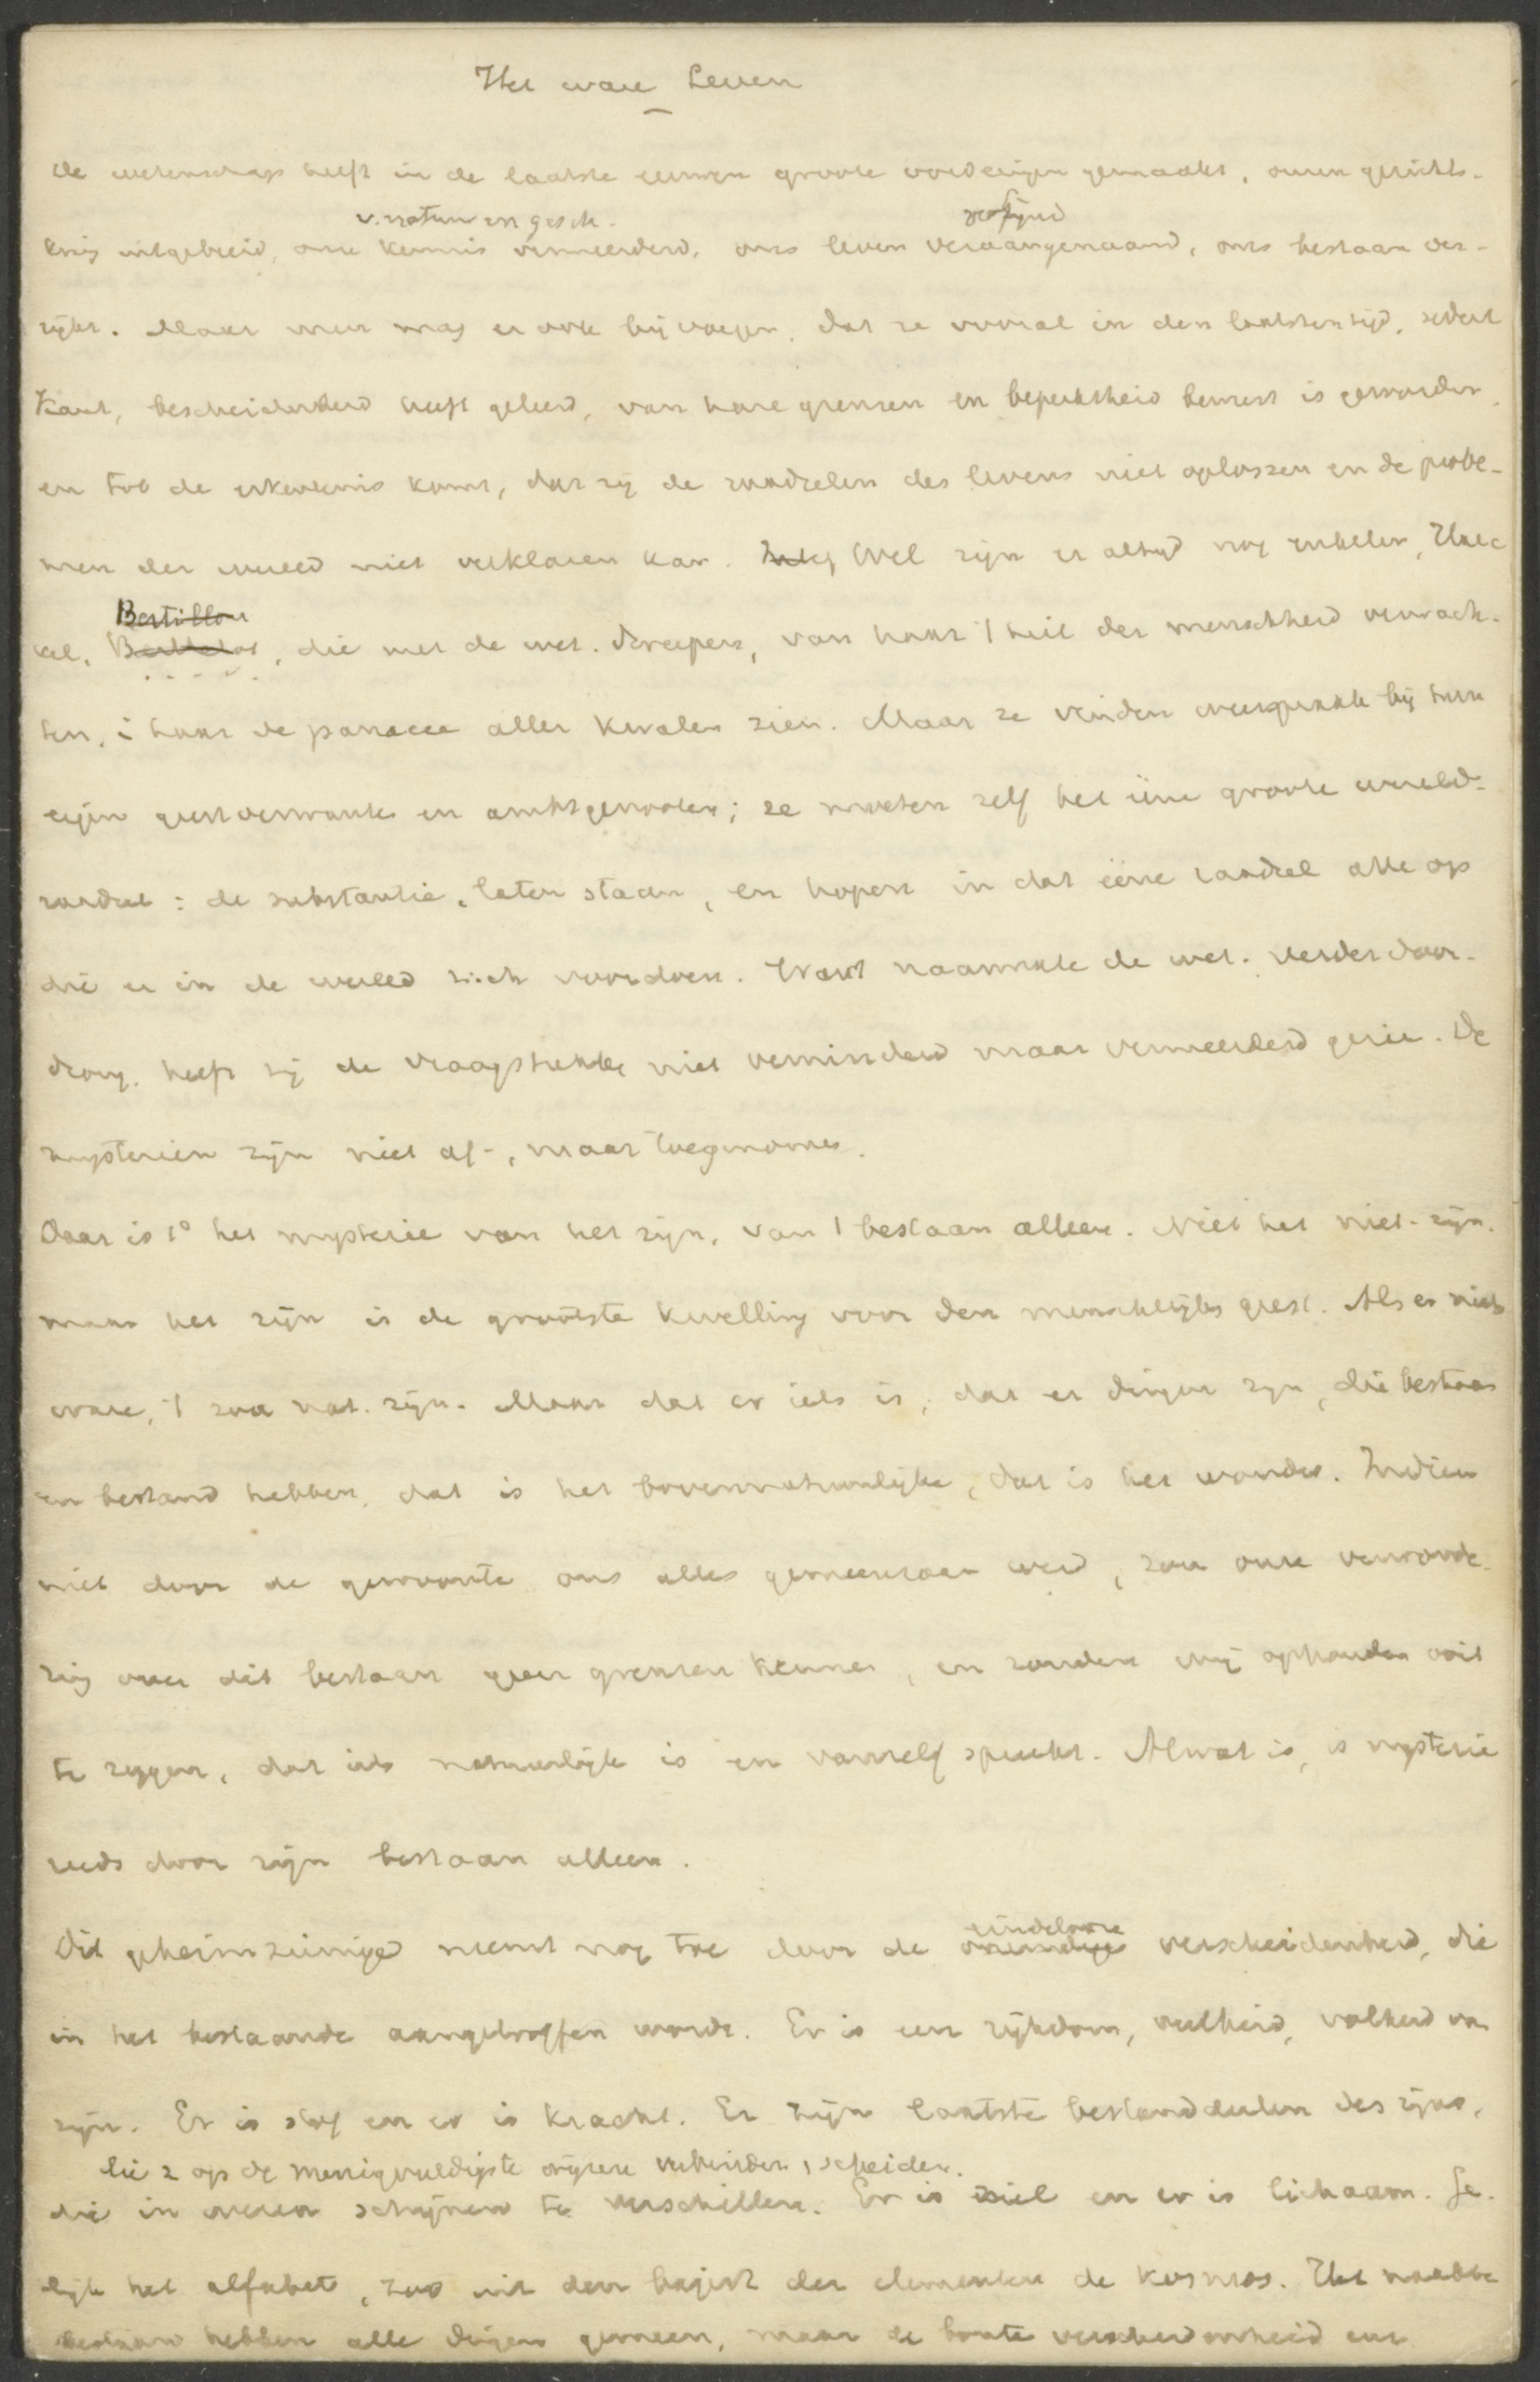 Het ware Leven
De wetenschap heeft in de laatste eeuwen groote vorderingen gemaakt, onzen gezichts-
v. natuur en gesch. verfijnd
kring uitgebreid, onze kennis vermeerderd, ons leven veraangenaamd, ons bestaan ver-
rijkt. Maar men mag er ook bij voegen, dat ze vooral in den laatsten tijd, sedert
Kant, bescheidenheid heeft geleerd, van hare grenzen en beperktheid bewust is geworden,
en tot de erkentenis komt, dat zij de raadselen des levens niet oplossen en de probe-
men der wereld niet verklaren kan. Wel zijn er altijd nog enkelen, Haec
Bertillon
kel, Berthelot, die met de wet. dweepen, van haar 't heil der menschheid verwach-
ten, i haar de panacee aller kwalen zien. Maar ze vinden weerspraak bij hun
eigen geestverwanten en ambtgenooten; ze moeten zelf het ééne groote wereld-
raadsel: de substantie, laten staan, en hopen in dat ééne raadsel alle op
die er in de wereld zich voordoen. Want naarmate de wet. verder door-
drong, heeft zij de vraagstukken niet verminderd maar vermeerderd gezien. De
mysteriën zijn niet af-, maar toegenomen.
Daar is 1° het mysterie van het zijn, van 't bestaan alleen. Niet het niet-zijn,
maar het zijn is de grootste kwelling voor den menschelijken geest. Als er niets
ware, 't zou nat. zijn. Maar dat er iets is, dat er dingen zijn, die bestaan
en bestand hebben, dat is het bovennatuurlijke, dat is het wonder. Indien
niet door de gewoonte ons alles gemeenzaam werd, zou onze verwonde-
ring over dit bestaan geen grenzen kennen, en zouden wij ophouden ooit
te zeggen, dat iets natuurlijk is en vanzelf spreekt. Al wat is, is mysterie
reeds door zijn bestaan alleen.
eindelooze
Dit geheimzinnige neemt nog toe door de oneindige verscheidenheid, die
in het bestaande aangetroffen wordt. Er is een rijkdom, veelheid, volheid van
zijn. Er is stof en er is kracht. Er zijn laatste bestanddeelen des zijns,
die z op de menigvuldigste wijzen verbinden, scheiden.
die in wezen schijnen te verschillen. Er is ziel en er is lichaam. Ge-
lijk het alfabet, zoo uit den bajert der elementen de kosmos. Het naakte
bestaan hebben alle dingen gemeen, maar de bonte verscheidenheid eer